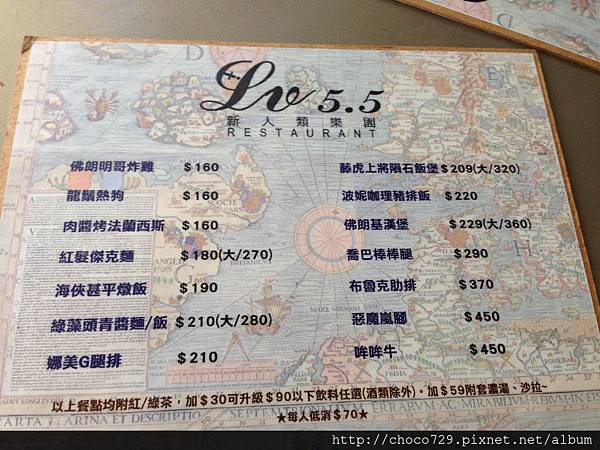 Lv 5.5
新人類樂園
RESTAURANT
佛朗明哥炸雞 $160
龍鬚熱狗 $160
肉醬烤法蘭西斯 $160
紅髮傑克麵 $180(大/270)
海俠甚平燉飯 $190
綠藻頭青醬麵/飯 $210(大/280)
娜美G腿排 $210
藤虎上將隕石飯堡 $209(大/320)
波妮咖理豬排飯 $220
佛朗基漢堡 $229(大/360)
喬巴棒棒腿 $290
布魯克肋排 $370
惡魔嵐腳 $450
哞哞牛 $450
以上餐點均附紅/綠茶,加$30可升級$90以下飲料任選(酒類除外)。加$59附套濃湯、沙拉~
★每人低消$70★
http://choco729.pixnet.net/album